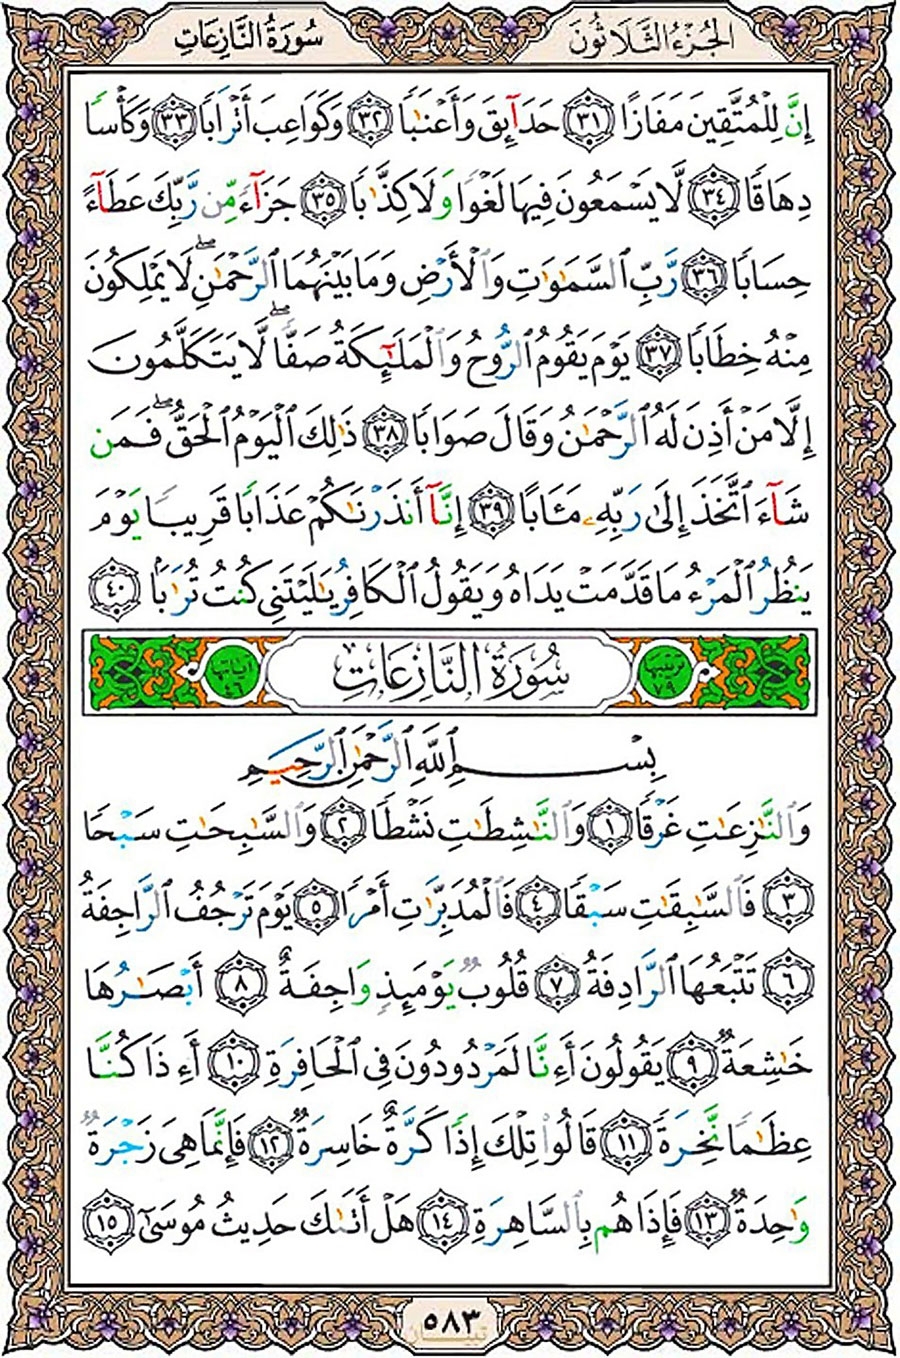 الجُزءُ الثَّلَاثُونَ
سُورَةُ النَّازِعَاتِ
إِنَّ لِلْمُتَّقِينَ مَفَازًا ﴿٣١﴾ حَدَآئِقَ وَأَعْنَٰبًا ﴿٣٢﴾ وَكَوَاعِبَ أَتْرَابًا ﴿٣٣﴾ وَكَأْسًا
دِهَاقًا ﴿٣٤﴾ لَّا يَسْمَعُونَ فِيهَا لَغْوًا وَلَا كِذَّٰبًا ﴿٣٥﴾ جَزَآءً مِّن رَّبِّكَ عَطَآءً
حِسَابًا ﴿٣٦﴾ رَّبِّ ٱلسَّمَٰوَٰتِ وَٱلْأَرْضِ وَمَا بَيْنَهُمَا ٱلرَّحْمَٰنِ ۖ لَا يَمْلِكُونَ
مِنْهُ خِطَابًا ﴿٣٧﴾ يَوْمَ يَقُومُ ٱلرُّوحُ وَٱلْمَلَٰٓئِكَةُ صَفًّا ۖ لَّا يَتَكَلَّمُونَ
إِلَّا مَنْ أَذِنَ لَهُ ٱلرَّحْمَٰنُ وَقَالَ صَوَابًا ﴿٣٨﴾ ذَٰلِكَ ٱلْيَوْمُ ٱلْحَقُّ ۖ فَمَن
شَآءَ ٱتَّخَذَ إِلَىٰ رَبِّهِۦ مَـَٔابًا ﴿٣٩﴾ إِنَّآ أَنذَرْنَٰكُمْ عَذَابًا قَرِيبًا يَوْمَ
يَنظُرُ ٱلْمَرْءُ مَا قَدَّمَتْ يَدَاهُ وَيَقُولُ ٱلْكَافِرُ يَٰلَيْتَنِى كُنتُ تُرَٰبًۢا ﴿٤٠﴾
ترتيبها ٧٩
سُورَةُ النَّازِعَاتِ
آياتها ٤٦
بِسْمِ ٱللَّهِ ٱلرَّحْمَٰنِ ٱلرَّحِيمِ
وَٱلنَّٰزِعَٰتِ غَرْقًا ﴿١﴾ وَٱلنَّٰشِطَٰتِ نَشْطًا ﴿٢﴾ وَٱلسَّٰبِحَٰتِ سَبْحًا
﴿٣﴾ فَٱلسَّٰبِقَٰتِ سَبْقًا ﴿٤﴾ فَٱلْمُدَبِّرَٰتِ أَمْرًا ﴿٥﴾ يَوْمَ تَرْجُفُ ٱلرَّاجِفَةُ
﴿٦﴾ تَتْبَعُهَا ٱلرَّادِفَةُ ﴿٧﴾ قُلُوبٌ يَوْمَئِذٍ وَاجِفَةٌ ﴿٨﴾ أَبْصَٰرُهَا
خَٰشِعَةٌ ﴿٩﴾ يَقُولُونَ أَءِنَّا لَمَرْدُودُونَ فِى ٱلْحَافِرَةِ ﴿١٠﴾ أَءِذَا كُنَّا
عِظَٰمًا نَّخِرَةً ﴿١١﴾ قَالُوا۟ تِلْكَ إِذًا كَرَّةٌ خَاسِرَةٌ ﴿١٢﴾ فَإِنَّمَا هِىَ زَجْرَةٌ
وَٰحِدَةٌ ﴿١٣﴾ فَإِذَا هُم بِٱلسَّاهِرَةِ ﴿١٤﴾ هَلْ أَتَىٰكَ حَدِيثُ مُوسَىٰٓ ﴿١٥﴾
٥٨٣
تبيان